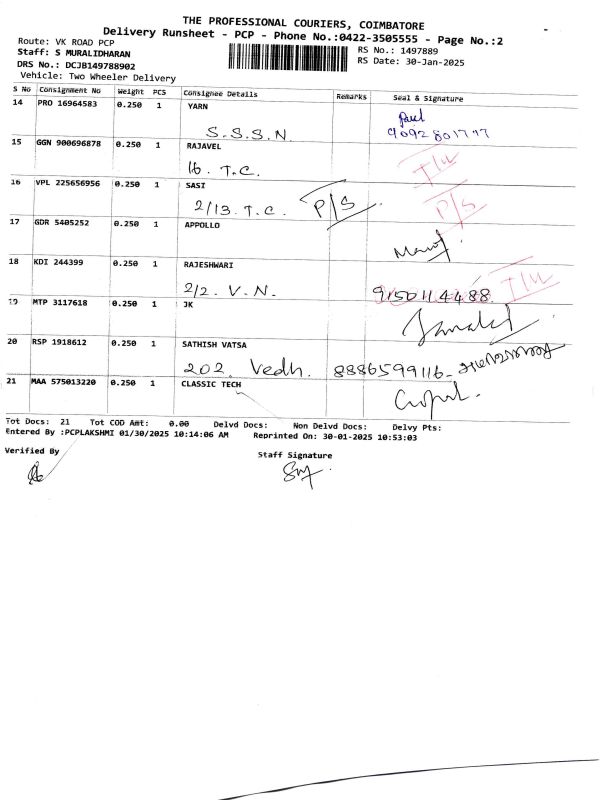 THE PROFESSIONAL COURIERS, COIMBATORE
Delivery Runsheet - PCP - Phone No.:0422-3505555 - Page No.:2
Route: VK ROAD PCP
RS No.: 1497889
Staff: S MURALIDHARAN
RS Date: 30-Jan-2025
DRS No.: DCJB149788902
Vehicle: Two Wheeler Delivery
S No Consignment No Weight PCS Consignee Details Remarks Seal & Signature
14 PRO 16964583 0.250 1 YARN
S.S.S.N. 9092801777
15 GGN 900696878 0.250 1 RAJAVEL
16. T.C. I/W
16 VPL 225656956 0.250 1 SASI
2/13. T.C. P/S P/S
17 GDR 5405252 0.250 1 APPOLLO
18 KDI 244399 0.250 1 RAJESHWARI
2/2. V.N. 9150114488 I/W
19 MTP 3117618 0.250 1 JK
20 RSP 1918612 0.250 1 SATHISH VATSA
202. Vedh. 8886599116-
21 MAA 575013220 0.250 1 CLASSIC TECH
Tot Docs: 21 Tot COD Amt: 0.00 Delvd Docs: Non Delvd Docs: Delvy Pts:
Entered By :PCPLAKSHMI 01/30/2025 10:14:06 AM Reprinted On: 30-01-2025 10:53:03
Verified By Staff Signature